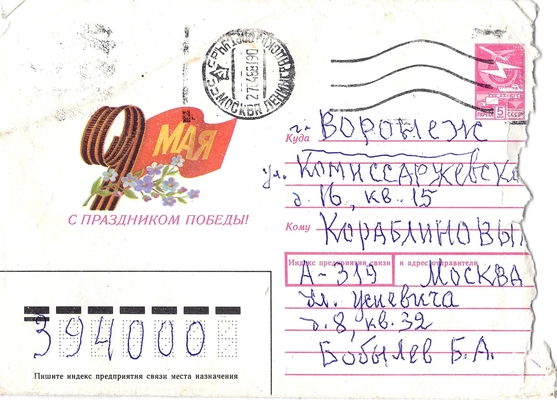 МОСКВА
27.4.88 1900
ПОЧТА 5к СССР
9 МАЯ
С ПРАЗДНИКОМ ПОБЕДЫ!
Куда г. ВОРОНЕЖ
ул. КОМИССАРЖЕВСКА
д. 16, кв. 15
Кому КОРАБЛИНОВЫ
Индекс предприятия связи и адрес отправителя
А-319 МОСКВА
ул. Усиевича
д. 8, кв. 32
Бобылев Б. А.
394000
Пишите индекс предприятия связи места назначения